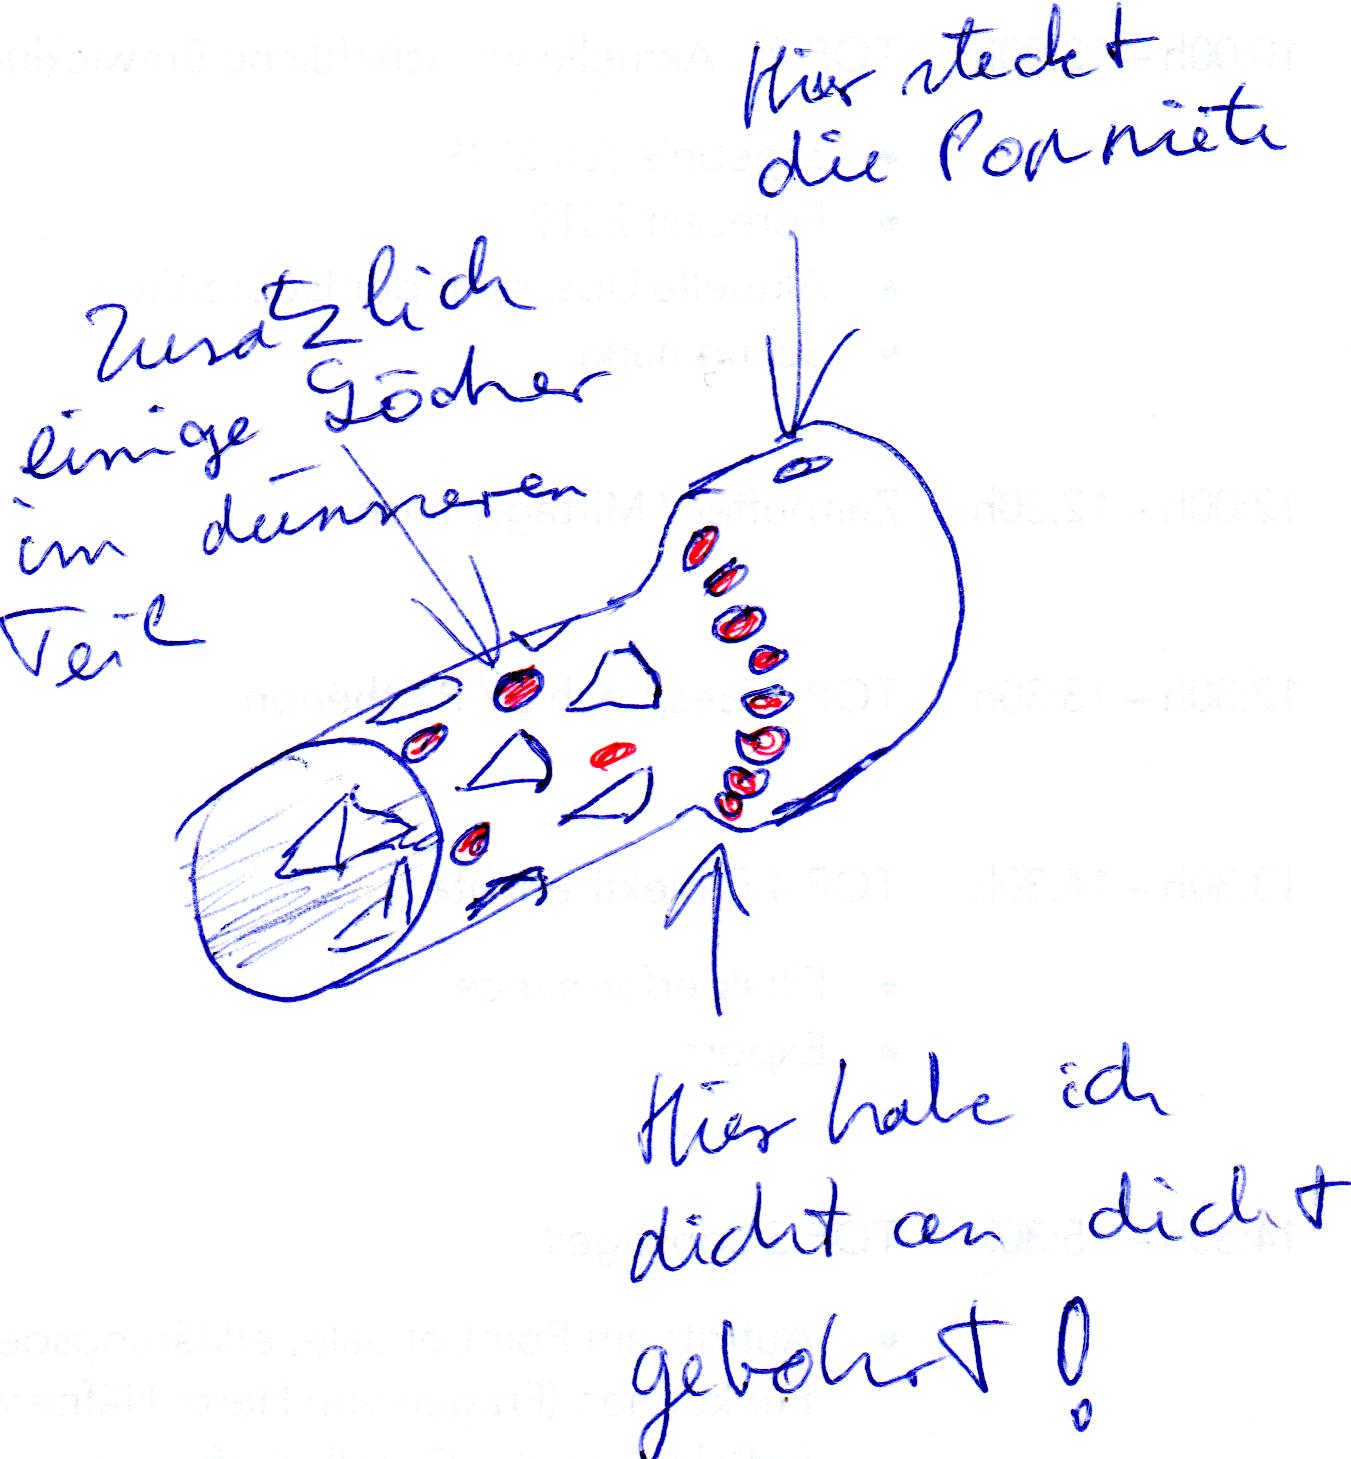 Hier steckt
die Popniete
Zusatzlich
einige Löcher
im dünneren
Teil
Hier habe ich
dicht an dicht
gebohrt!